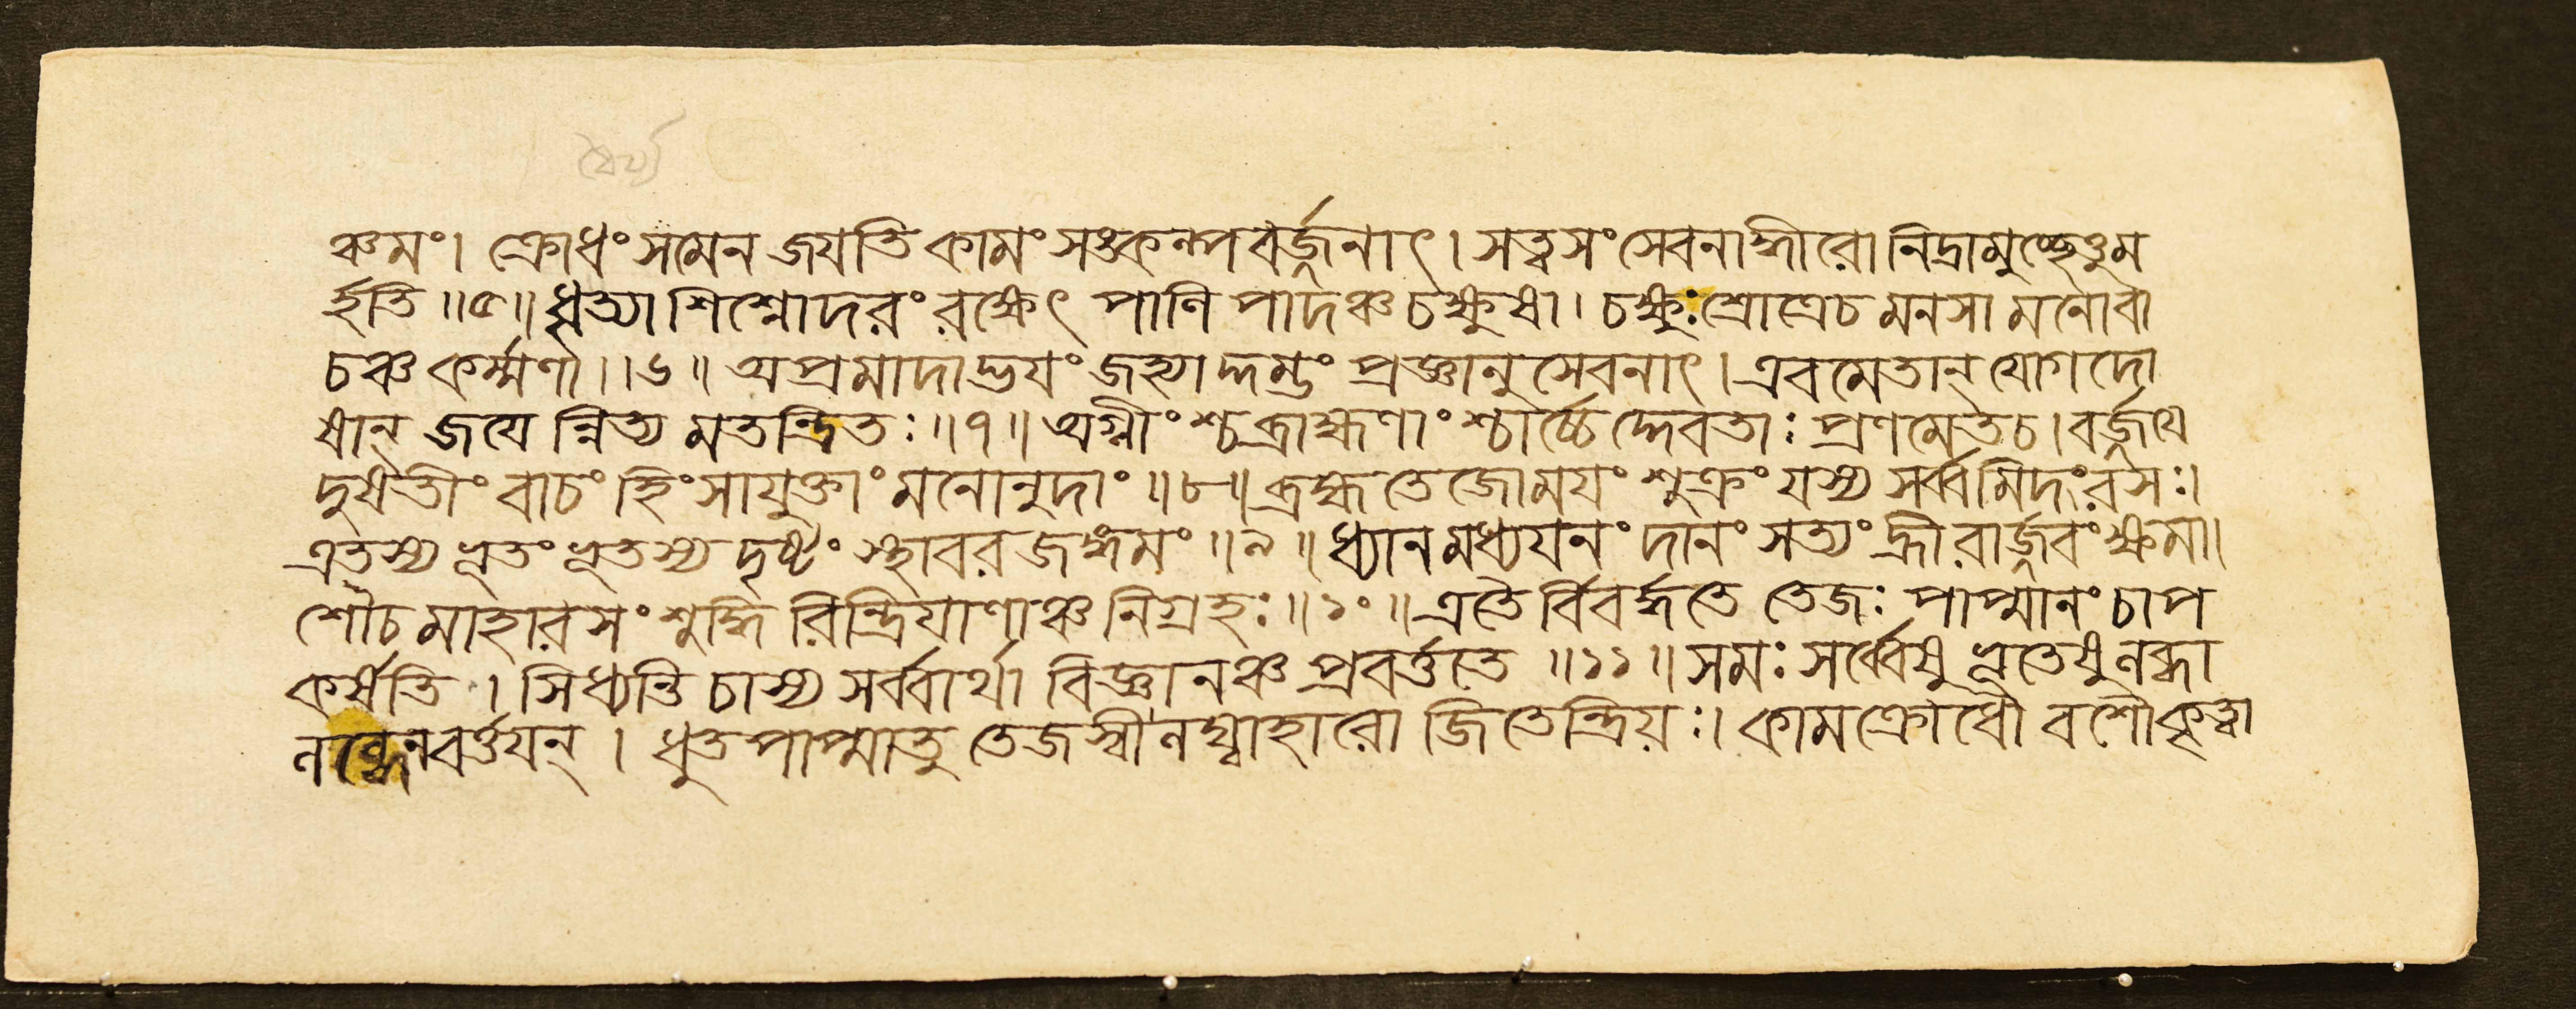 ধৈর্য্য
ঞ্চমং। ক্রোধং সমেন জযতি কামং সঙকল্প বর্জ্জনাৎ। সত্ত্ব সং সেবনাদ্ধীরো নিদ্রামুচ্ছেত্তুম
র্হতি ॥৫॥ ধৃত্যা শিশ্নোদরং রক্ষেৎ পাণি পাদঞ্চ চক্ষুষা। চক্ষুঃ শ্রোত্রেচ মনসা মনোবা
চঞ্চ কর্ম্মণা।।৬॥ অপ্রমাদাদ্ভযং জহ্যাদ্দম্ভং প্রজ্ঞানু সেবনাৎ। এবমেতান্ যোগ দো
ষান্ জযে ন্নিত্য মতন্দ্রিতঃ ॥৭॥ অগ্নীংশ্চ ব্রাহ্মণাংশ্চার্চ্চেদ্দেবতাঃ প্রণমেতচ। বর্জ্জযে
দুষতীং বাচং হিংসাযুক্তাং মনোনুদাং ॥৮॥ ব্রহ্ম তেজোমযং শুক্রং যস্য সর্ব্বমিদং রসঃ।
এতস্য ভূতং ভূতস্য দৃষ্টং স্থাবর জঙ্গমং ॥৯॥ ধ্যানমধ্যযনং দানং সত্যং হ্রীরার্জ্জবং ক্ষমা।
শৌচমাহারসং শুদ্ধি রিন্দ্রিযাণাঞ্চ নিগ্রহঃ ॥১০॥ এতৈ র্বিবর্দ্ধতে তেজঃ পাপ্মানং চাপ
কর্ষতি। সিধ্যন্তি চাস্য সর্ব্বার্থা বিজ্ঞানঞ্চ প্রবর্ত্ততে ॥১১॥ সমঃ সর্ব্বেষু ভূতেষু লব্ধা
লব্ধেন বর্ত্তযন্। ধুত পাপ্মাতু তেজস্বী লঘ্বাহারো জিতেন্দ্রিয়ঃ। কামক্রোধৌ বশৌকৃত্বা